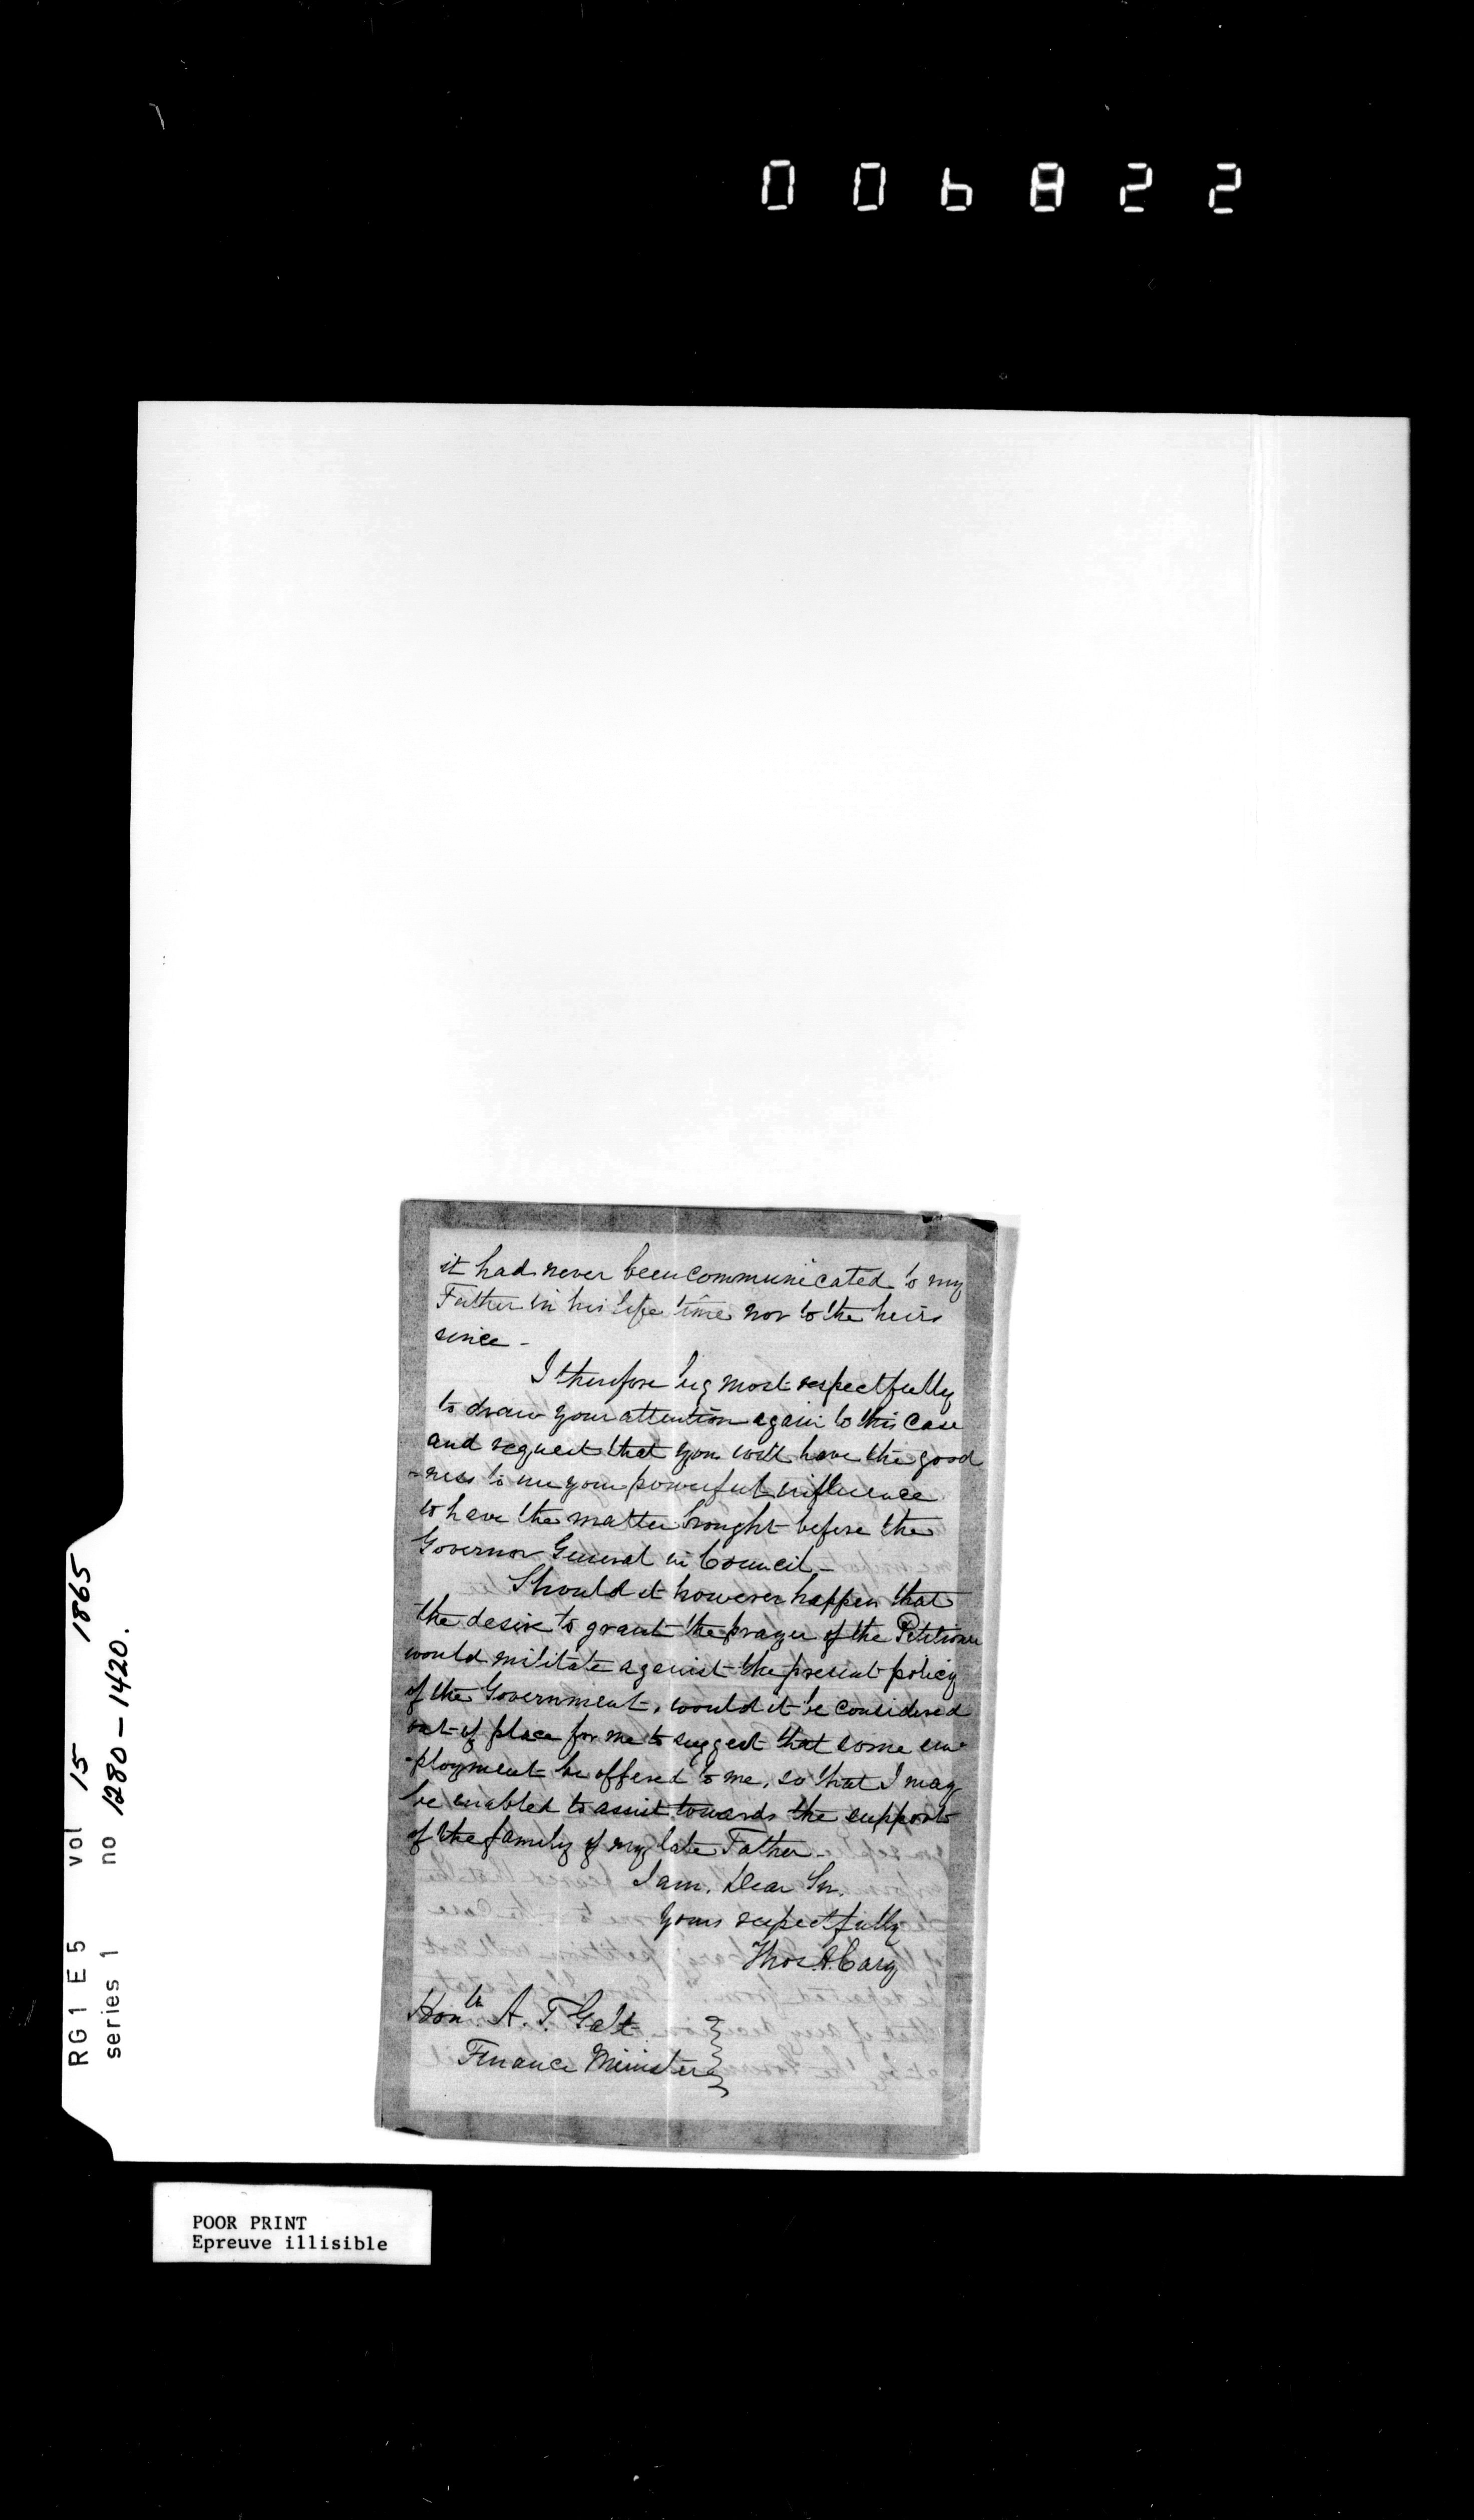 006822
it had never been communicated to my
Father in his life time nor to the heirs
since -
I therefore beg most respectfully
to draw your attention again to this case
and request that you will have the good
-ness to use your powerful influence
to have the matter brought before the
Governor General in Council -
Should it however happen that
the desire to grant the prayer of the Petitioner
would militate against the present policy
of the Government, would it be considered
out of place for me to suggest that some em-
-ployment be offered to me, so that I may
be enabled to assist towards the support
of the family of my late Father -
I am, Dear Sir,
Yours respectfully
Thos. A. Cary
Honble A. T. Galt
Finance Minister
RG 1 E 5 vol 15 1865
series 1 no 1280-1420.
POOR PRINT
Epreuve illisible